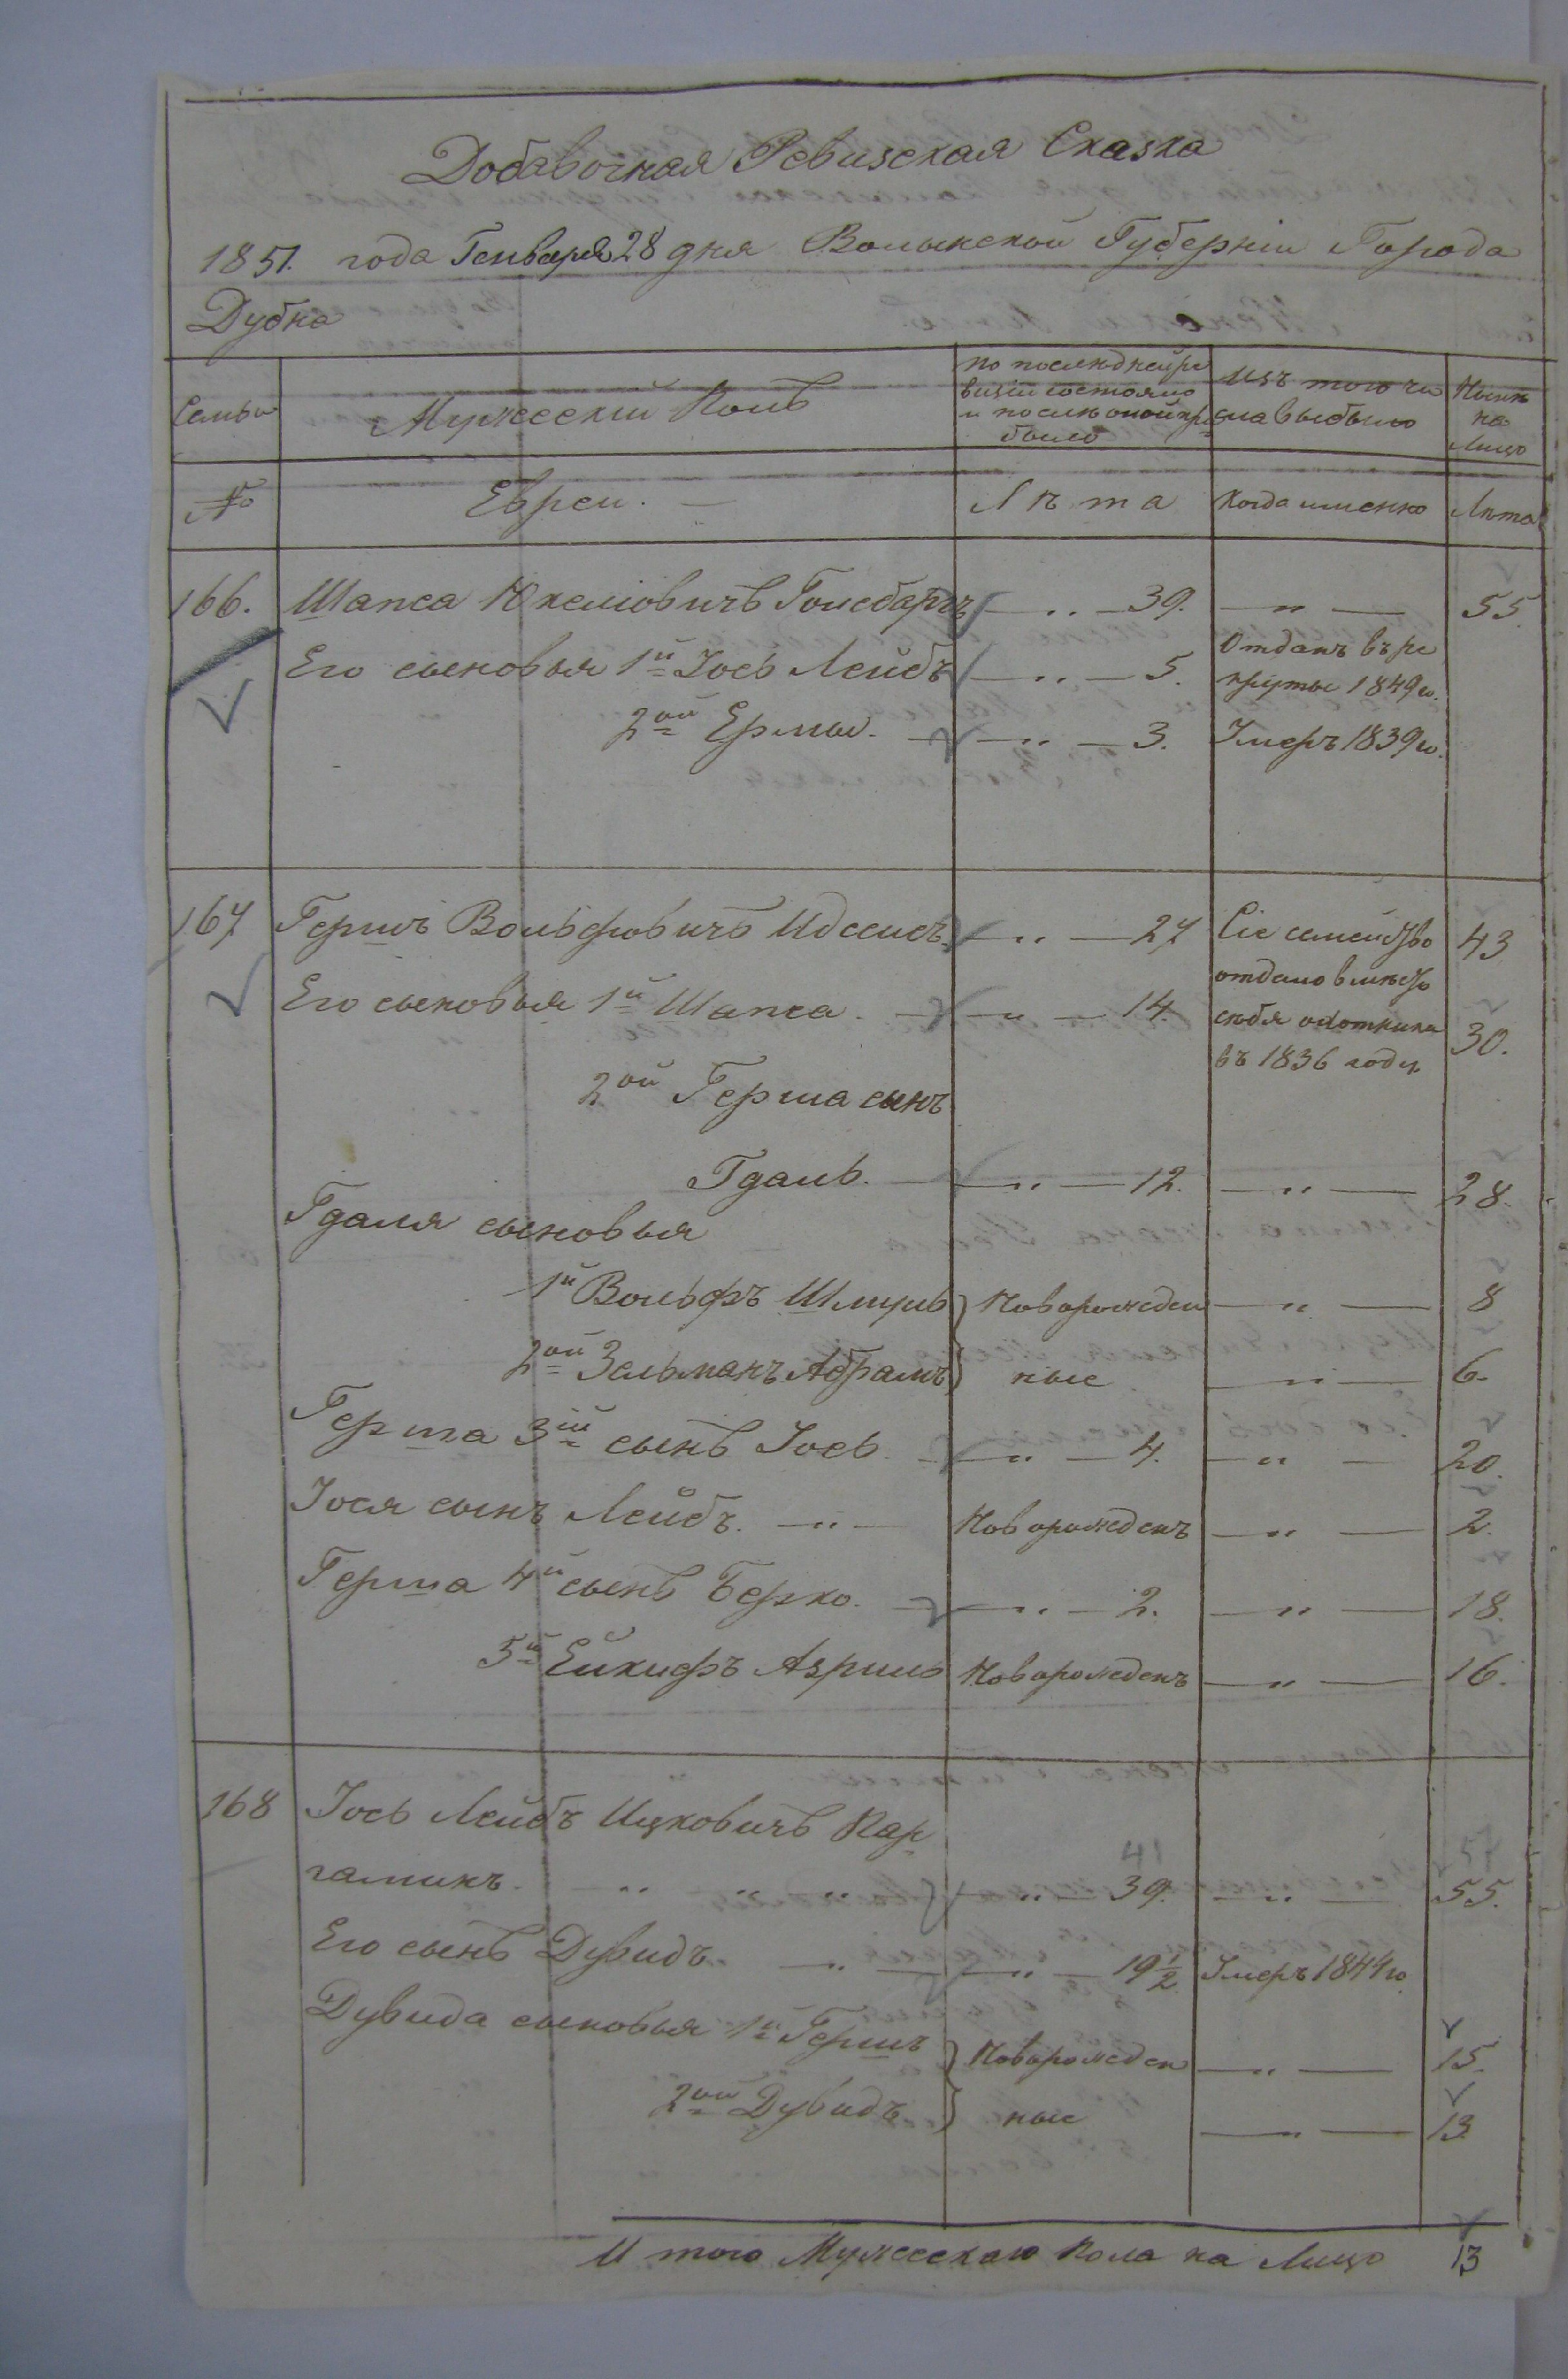 Добавочная Ревизская Сказка
1851. года Генваря 28 дня Волынской Губернiи Города
Дубна
Семьи
Мужескiй Полъ
по последней ре
визiи состояло
и послѣ оной при
было
Изъ того чи
сла выбыло
Нынѣ
на
Лицо
№
Евреи. —
Лѣта
Когда именно
Лѣта
166. Шапса Юхелiовичъ Гольсбаргъ — „ — 39. — „ — 55.
Его сыновья 1й Iось Лейбъ — „ — 5. Отданъ въ ре
круты 1849го.
2ой Ермы. — „ — 3. Умеръ 1839го.
167 Гершъ Вольфовичъ — „ — 27 Сiе семейство 43
отдало вмѣсто
Его сыновья 1й Шапса. — „ — 14. себя охотника 30.
въ 1836 году.
2ой Герша сынъ
Гдаль. — „ — 12. — „ — 28.
Гдаля сыновья
1й Вольфъ Шмуль } Новорожден — „ — 8
2ой Зельманъ Абрамъ } ные — „ — 6.
Герша 3iй сынъ Iось — „ — 4. — „ — 20.
Iося сынъ Лейбъ. — „ — Новорожденъ — „ — 2.
Герша 4й сынъ Берко. — „ — 2. — „ — 18.
5й Азриль Новорожденъ — „ — 16.
168 Iось Лейбъ Ицковичъ Кар
гаминъ. „ „ „ — „ — 39. — „ — 55.
41
Его сынъ Дувидъ. — „ — „ — 19½ Умеръ 1844го.
Дувида сыновья 1й Гершъ } Новорожден — „ — 15.
2ой Дувидъ } ные — „ — 13.
И того Мужескаго Пола на Лицо 13